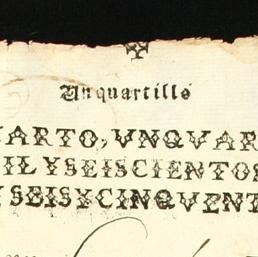 Un quartillo
VARTO, VNQVAR
ILYSEISCIENTOS
YSEISYCINQVENT